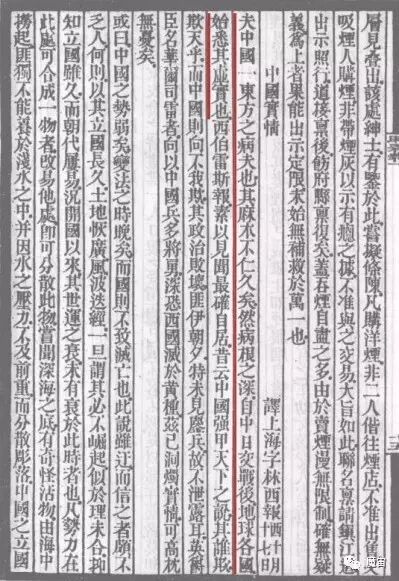 層見叠出該處紳士有鑒於此嘗擬條陳凡購洋煙非二人偕往煙店不准出售又
吸煙人購煙非帶煙灰以示有癮之據不准與之交易大旨如此聯名稟請鎮江道
出示照行道接稟後飭府縣稟復矣蓋吞煙自盡之多由於賣煙漫無限制確無疑
義爲上者果能出示定限未始無補救於萬一也
中國實情 譯上海字林西報 西十月十七日
夫中國一東方之病夫也其麻木不仁久矣然病根之深自中日交戰後地球各國
始悉其虛實也西伯雷斯報素以見聞最確自居昔云中國强甲天下之說其誰欺
欺天乎而中國則向不我欺其政治敗壞匪伊朝夕特未見鏖兵故不泄露耳英爵
臣名華爾司雷者向以中國兵多將勇深恐西國滅於黄種茲已洞燭實情可高枕
無憂矣
或曰中國之勢弱矣變法之時晚矣而國則不致滅亡也此說雖迂而信之者頗不
乏人何則以其立國長久土地恢廣風波迭經一旦謂其必不崛起似於理未合抑
知立國雖久而朝代屢易況開國以來其世運之衰未有衰於此時者也凡熱力在
此處可合成一物者改易他處卽可分散此物嘗聞深海之底有奇怪活物由海中
撈起匪獨不能養於淺水之中并因水之壓力不及前重而分散彫落中國之立國